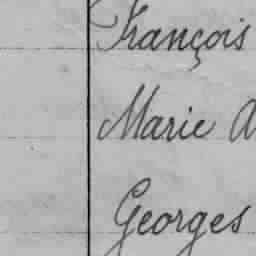 François
Marie A
Georges